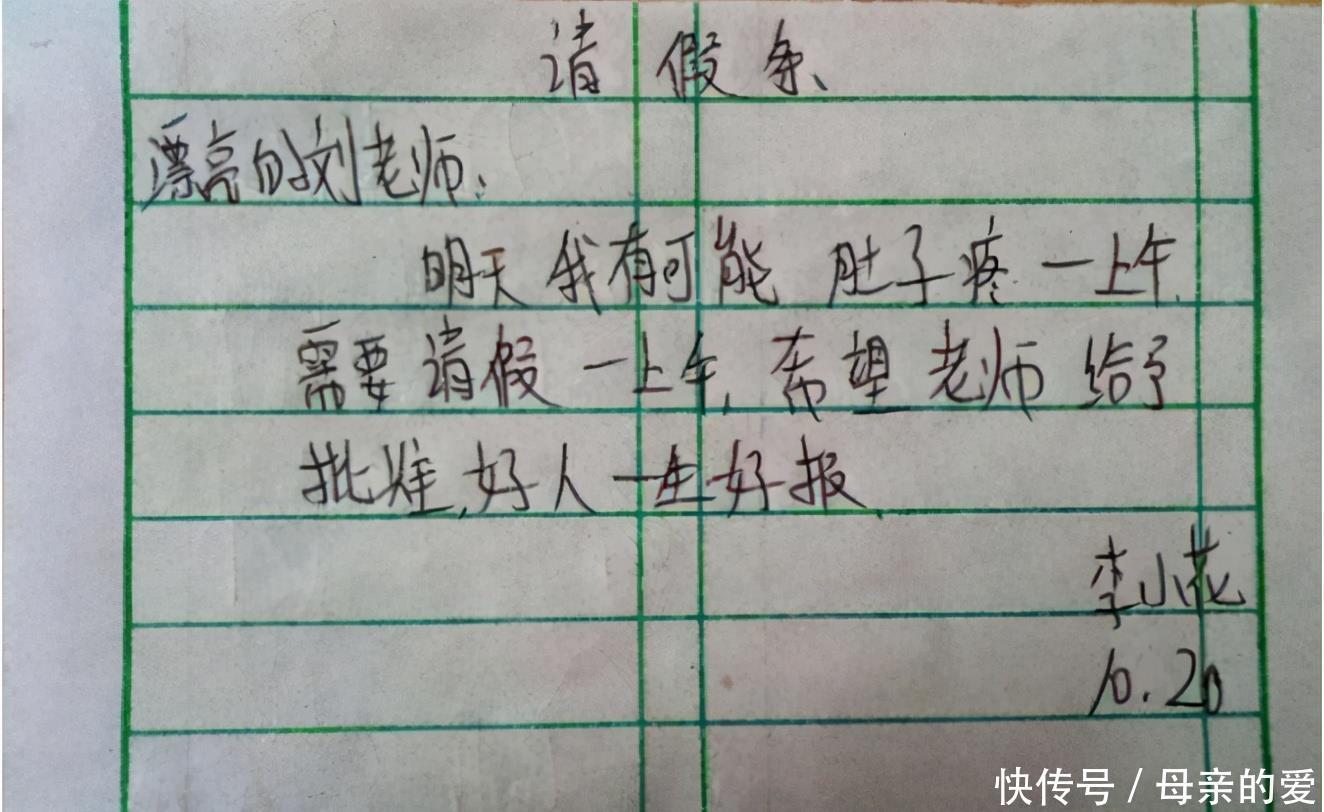 请假条
漂亮的刘老师:
明天我有可能肚子疼一上午,
需要请假一上午,希望老师给予
批准,好人一生好报.
李小花
10.20
快传号/母亲的爱